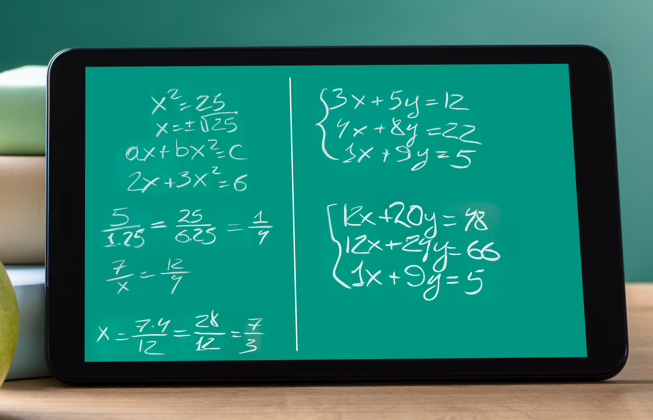 x²=25
x=±√25
ax+bx²=c
2x+3x²=6
5/1.25 = 25/6.25 = 1/4
7/x = 12/4
x = 7·4/12 = 28/12 = 7/3
3x+5y=12
4x+8y=22
1x+9y=5
12x+20y=48
12x+24y=66
1x+9y=5